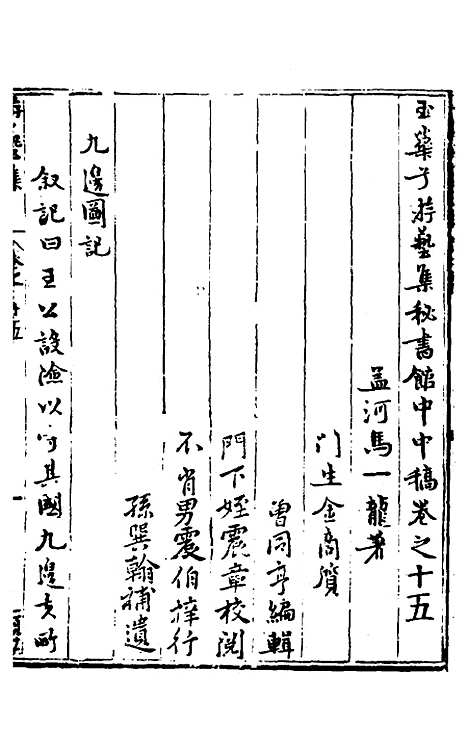 玉華子游藝集秘書館中中稿卷之十五
孟河馬一龍著
门生金商質
曾同亨編輯
門下姪震章校閲
不肖男震伯梓行
孫巽翰補遺
九邊圖記
叙記曰王公設險以守其國九邊者所